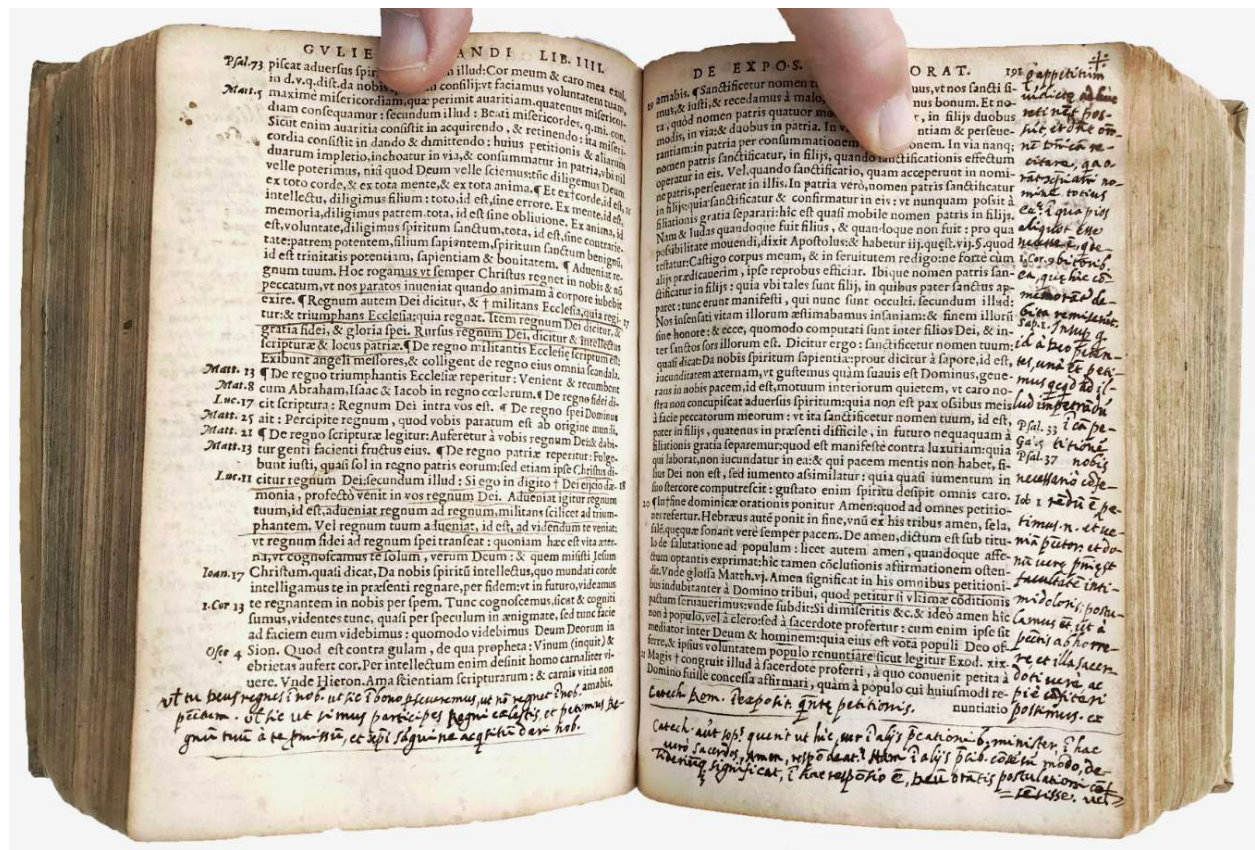 GVLIE ANDI LIB. IIII.
Psal.73 piscat aduersus spir illud: Cor meum & caro mea exul.
in d.v.q. dist. da nobis consilij: vt faciamus voluntatem tuam,
Matt.5 maximè misericordiam, quæ perimit auaritiam. quatenus misericor-
diam consequamur: secundum illud: Beati misericordes. q.mi. con.
Sicut enim auaritia consistit in acquirendo, & retinendo: ita miseri-
cordia consistit in dando & dimittendo: huius petitionis & aliarum
duarum impletio, inchoatur in via, & consummatur in patria, vbi nil
velle poterimus, nisi quod Deum velle sciemus: tūc diligemus Deum
ex toto corde, & ex tota mente, & ex tota anima. ¶ Et ex † corde, id est, 16
intellectu, diligimus filium: toto, id est, sine errore. Ex mente, id est,
memoria, diligimus patrem. tota, id est sine obliuione. Ex anima, id
est, voluntate, diligimus spiritum sanctum, tota, id est, sine contrarie-
tate: patrem potentem, filium sapientem, spiritum sanctum benignū,
id est trinitatis potentiam, sapientiam & bonitatem. ¶ Adueniat re-
gnum tuum. Hoc rogamus vt semper Christus regnet in nobis & nō
peccatum, vt nos paratos inueniat quando animam à corpore iubebit
exire. ¶ Regnum autem Dei dicitur, & † militans Ecclesia, quia regi- 17
tur: & triumphans Ecclesia: quia regnat. Item regnum Dei dicitur, &
gratia fidei, & gloria spei. Rursus regnum Dei, dicitur & intellectus
scripturæ & locus patriæ. ¶ De regno militantis Ecclesiæ scriptum est:
Exibunt angeli messores, & colligent de regno eius omnia scandala.
Matt. 13 ¶ De regno triumphantis Ecclesiæ reperitur: Venient & recumbent
Mat.8 cum Abraham, Isaac & Iacob in regno cœlorum. ¶ De regno fidei di-
Luc.17 cit scriptura: Regnum Dei intra vos est. ¶ De regno spei Dominus
Matt. 25 ait: Percipite regnum, quod vobis paratum est ab origine mundi,
Matt. 21 ¶ De regno scripturæ legitur: Auferetur à vobis regnum Dei & dabi-
Matt.13 tur genti facienti fructus eius. ¶ De regno patriæ reperitur: Fulge-
bunt iusti, quasi sol in regno patris eorum: sed etiam ipse Christus di-
Luc.11 citur regnum Dei: secundum illud: Si ego in digito † Dei eijcio dæ- 18
monia, profectò venit in vos regnum Dei. Adueniat igitur regnum
tuum, id est, adueniat regnum ad regnum, militans scilicet ad trium-
phantem. Vel regnum tuum adueniat, id est, ad videndum te veniat:
vt regnum fidei ad regnum spei transeat: quoniam hæc est vita æter-
na, vt cognoscamus te solum, verum Deum: & quem misisti Iesum
Ioan.17 Christum. quasi dicat, Da nobis spiritū intellectus, quo mundati corde
intelligamus te in præsenti regnare, per fidem: vt in futuro, videamus
1.Cor 13 te regnantem in nobis per spem. Tunc cognoscemus, sicut & cogniti
sumus, videntes tunc, quasi per speculum in ænigmate, sed tunc facie
ad faciem eum videbimus: quomodo videbimus Deum Deorum in
Osee 4 Sion. Quod est contra gulam, de qua propheta: Vinum (inquit) &
ebrietas aufert cor. Per intellectum enim desinit homo carnaliter vi-
uere. Vnde Hieron. Ama scientiam scripturarum: & carnis vitia non
amabis.
ut tu Deus regnes ī nob. ut sic ī bono pseueremus, ut nō regnet ī nob.
pēctum. ut sic ut simus participes Regni cælestis, et petimus Re-
gnū tuū à te pmissū, et xpi sāguine acqsitū dari nob.
DE EXPOS. ORAT. 192
amabis. ¶ Sanctificetur nomen t mus, vt nos sancti si-
mus, & iusti, & recedamus à malo, mus bonum. Et no-
ta, quòd nomen patris quatuor mo r, in filijs duobus
modis, in via: & duobus in patria. In v ntiam & perseue-
rantiam: in patria per consummationem onem. In via nanq;
nomen patris sanctificatur, in filijs, quando sanctificationis effectum
operatur in eis. Vel, quando sanctificatio, quam acceperunt in nomi-
ne patris, perseuerat in illis. In patria verò, nomen patris sanctificatur
in filijs: quia sanctificatur & confirmatur in eis: vt nunquam possit à
filiationis gratia separari: hic est quasi mobile nomen patris in filijs.
Nam & Iudas quandoque fuit filius, & quandoque non fuit: pro qua
possibilitate mouendi, dixit Apostolus: & habetur iij. quęst. vij. §. quod
testatur: Castigo corpus meum, & in seruitutem redigo: ne fortè cum 1.Cor.9
alijs prædicauerim, ipse reprobus efficiar. Ibique nomen patris san-
ctificatur in filijs: quia vbi tales sunt filij, in quibus pater sanctus ap-
paret: tunc erunt manifesti, qui nunc sunt occulti. secundum illud:
Nos insensati vitam illorum æstimabamus insaniam: & finem illorū Sap.5.
sine honore: & ecce, quomodo computati sunt inter filios Dei, & in-
ter sanctos sors illorum est. Dicitur ergo: sanctificetur nomen tuum:
quasi dicat: Da nobis spiritum sapientiæ: prout dicitur à sapore, id est,
iucunditatem æternam, vt gustemus quàm suauis est Dominus, gene-
rans in nobis pacem, id est, motuum interiorum quietem, vt caro no-
stra non concupiscat aduersus spiritum: quia non est pax ossibus meis
à facie peccatorum meorum: vt ita sanctificetur nomen tuum, id est, Psal. 33
pater in filijs, quatenus in præsenti difficile, in futuro nequaquam à
filiationis gratia separemur: quod est manifestè contra luxuriam: quia Ga. 5
qui laborat, non iucundatur in ea: & qui pacem mentis non habet, fi- Psal.37
lius Dei non est, sed iumento assimilatur: quia quasi iumentum in
suo stercore computrescit: gustato enim spiritu desipit omnis caro. Iob 1
¶ In † fine dominicæ orationis ponitur Amen: quod ad omnes petitio-
nes refertur. Hebræus autē ponit in fine, vnū ex his tribus amen, sela,
salē, quęquæ sonant verè semper pacem. De amen, dictum est sub titu-
lo de salutatione ad populum: licet autem amen, quandoque affe-
ctum optantis exprimat: hic tamen cōclusionis affirmationem osten-
dit. Vnde glossa Matth. vj. Amen significat in his omnibus petitioni-
bus indubitanter à Domino tribui, quod petitur si vltimæ cōditionis
pactum seruauerimus: vnde subdit: Si dimiseritis &c. & ideò amen hic
non à populo, vel à clero: sed à sacerdote profertur: cum enim ipse sit
mediator inter Deum & hominem: quia eius est vota populi Deo of-
ferre, & ipsius voluntatem populo renuntiare sicut legitur Exod. xix.
Magis † congruit illud à sacerdote proferri, à quo conuenit petita à
Domino fuisse concessa affirmari, quàm à populo cui huiusmodi re-
nuntiatio
Catech. Rom. ī exposit. qntę petitionis.
Catech. aūt
uerò sacerdos, Amen, respōdeat? Nam ī alijs
significat, ī hac respōsio ē, Deū